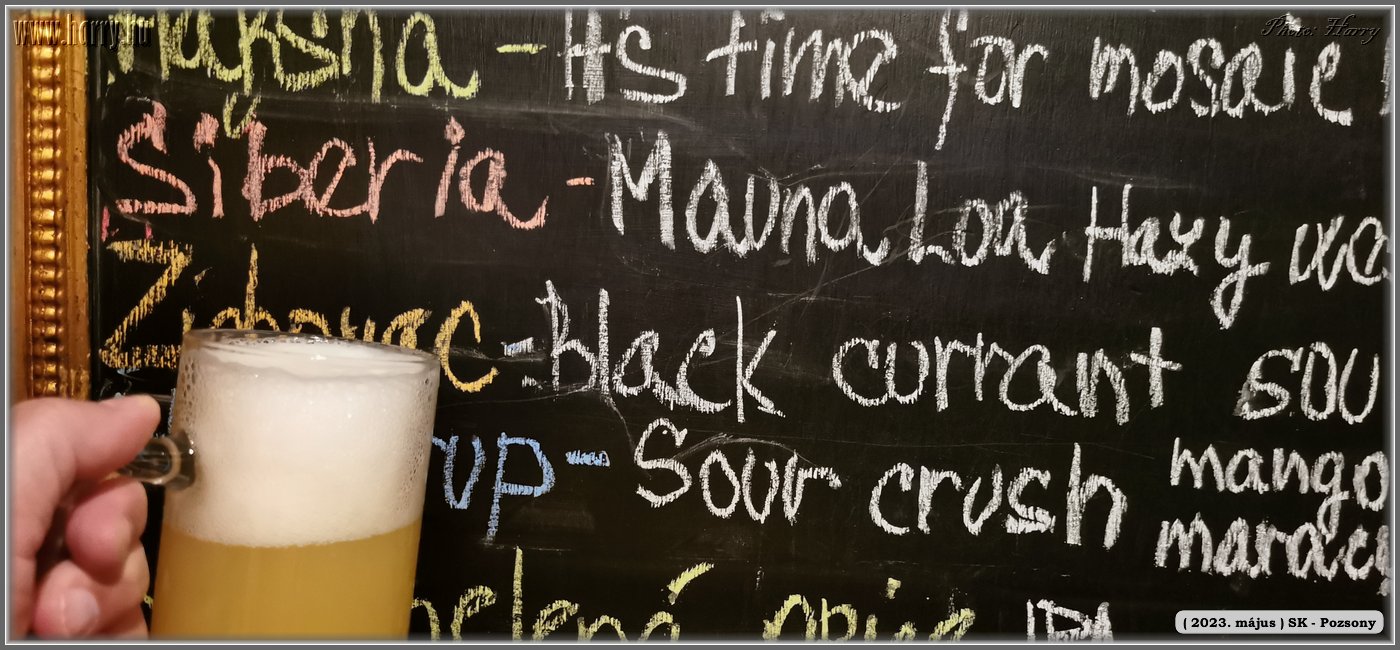 www.harry.hu
Photo: Harry
- It's time for mosaic
Siberia - Mauna Loa Hazy
- Black currant sou
up - Sour crush mango
marac
elená opice IPA
( 2023. május ) SK - Pozsony